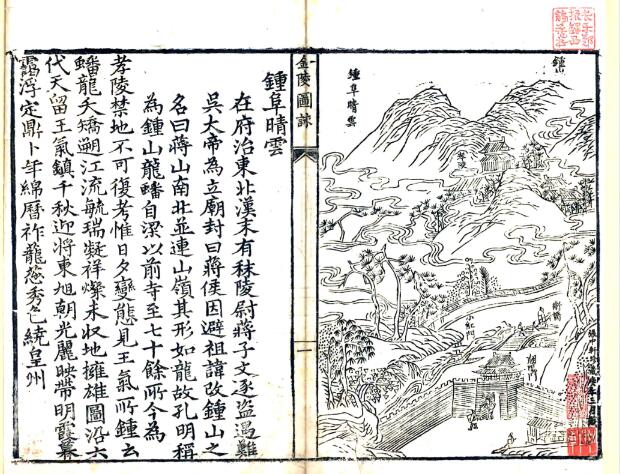 鍾山
鍾阜晴雲
草堂
朝陽門
金陵圖詠
一
鍾阜晴雲
在府治東北漢末有秣陵尉蔣子文逐盜遇難
吳大帝為立廟封曰蔣侯因避祖諱改鍾山之
名曰蔣山南北並連山嶺其形如龍故孔明稱
為鍾山龍蟠自梁以前寺至七十餘所今為
孝陵禁地不可復考惟日夕變態見王氣所鍾云
蟠龍夭矯朔江流毓瑞凝祥燦未收地擁雄圖沿六
代天留王氣鎮千秋迎將東旭朝光麗映帶明霞暮
靄浮定鼎卜年綿曆祚龍蔥秀色繞皇州